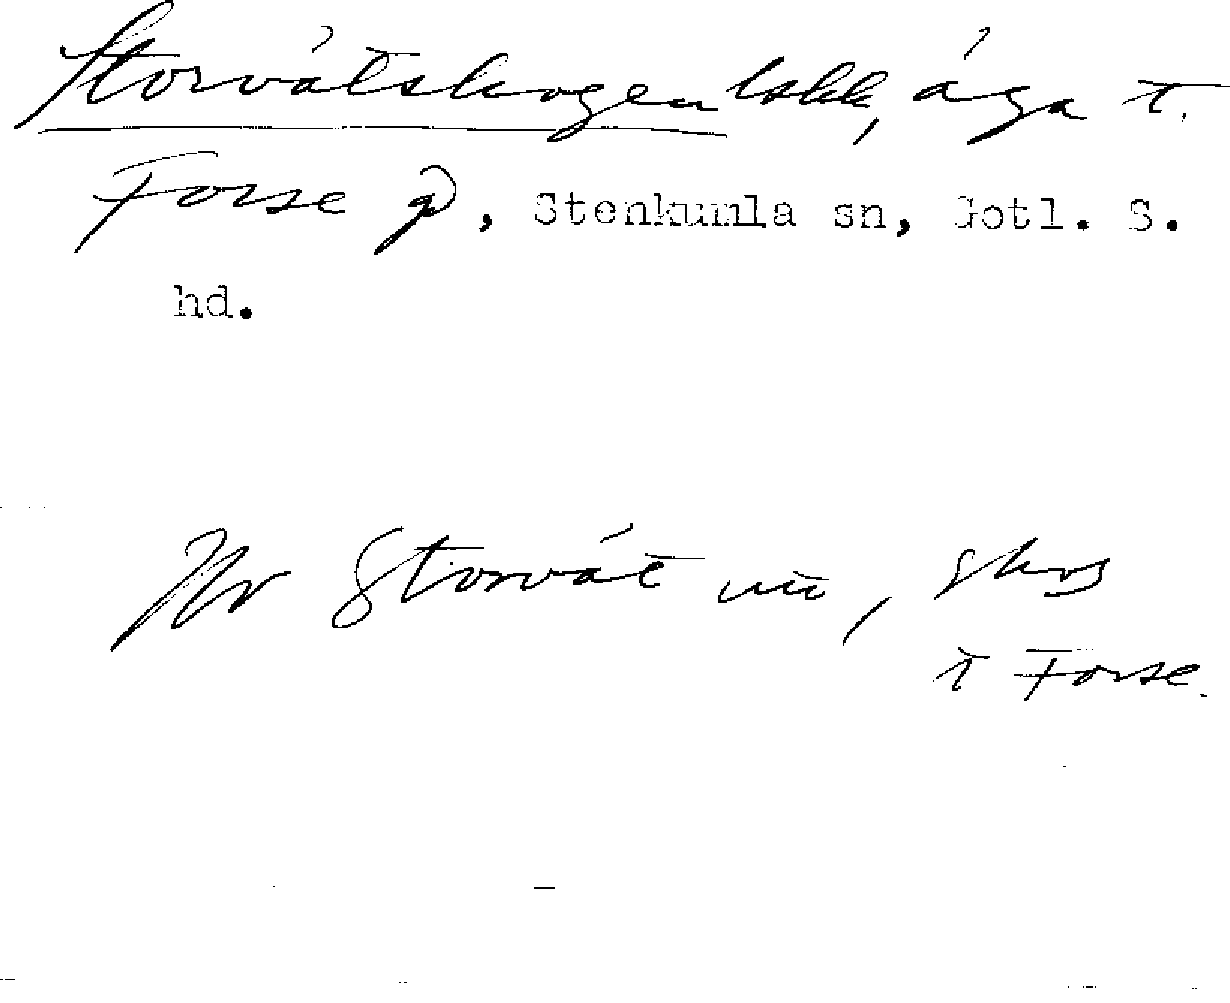 Storvätskogen lokk, äga t.
Forse gd, Stenkumla sn, Gotl. S.
hd.
Storvät
t Forse.